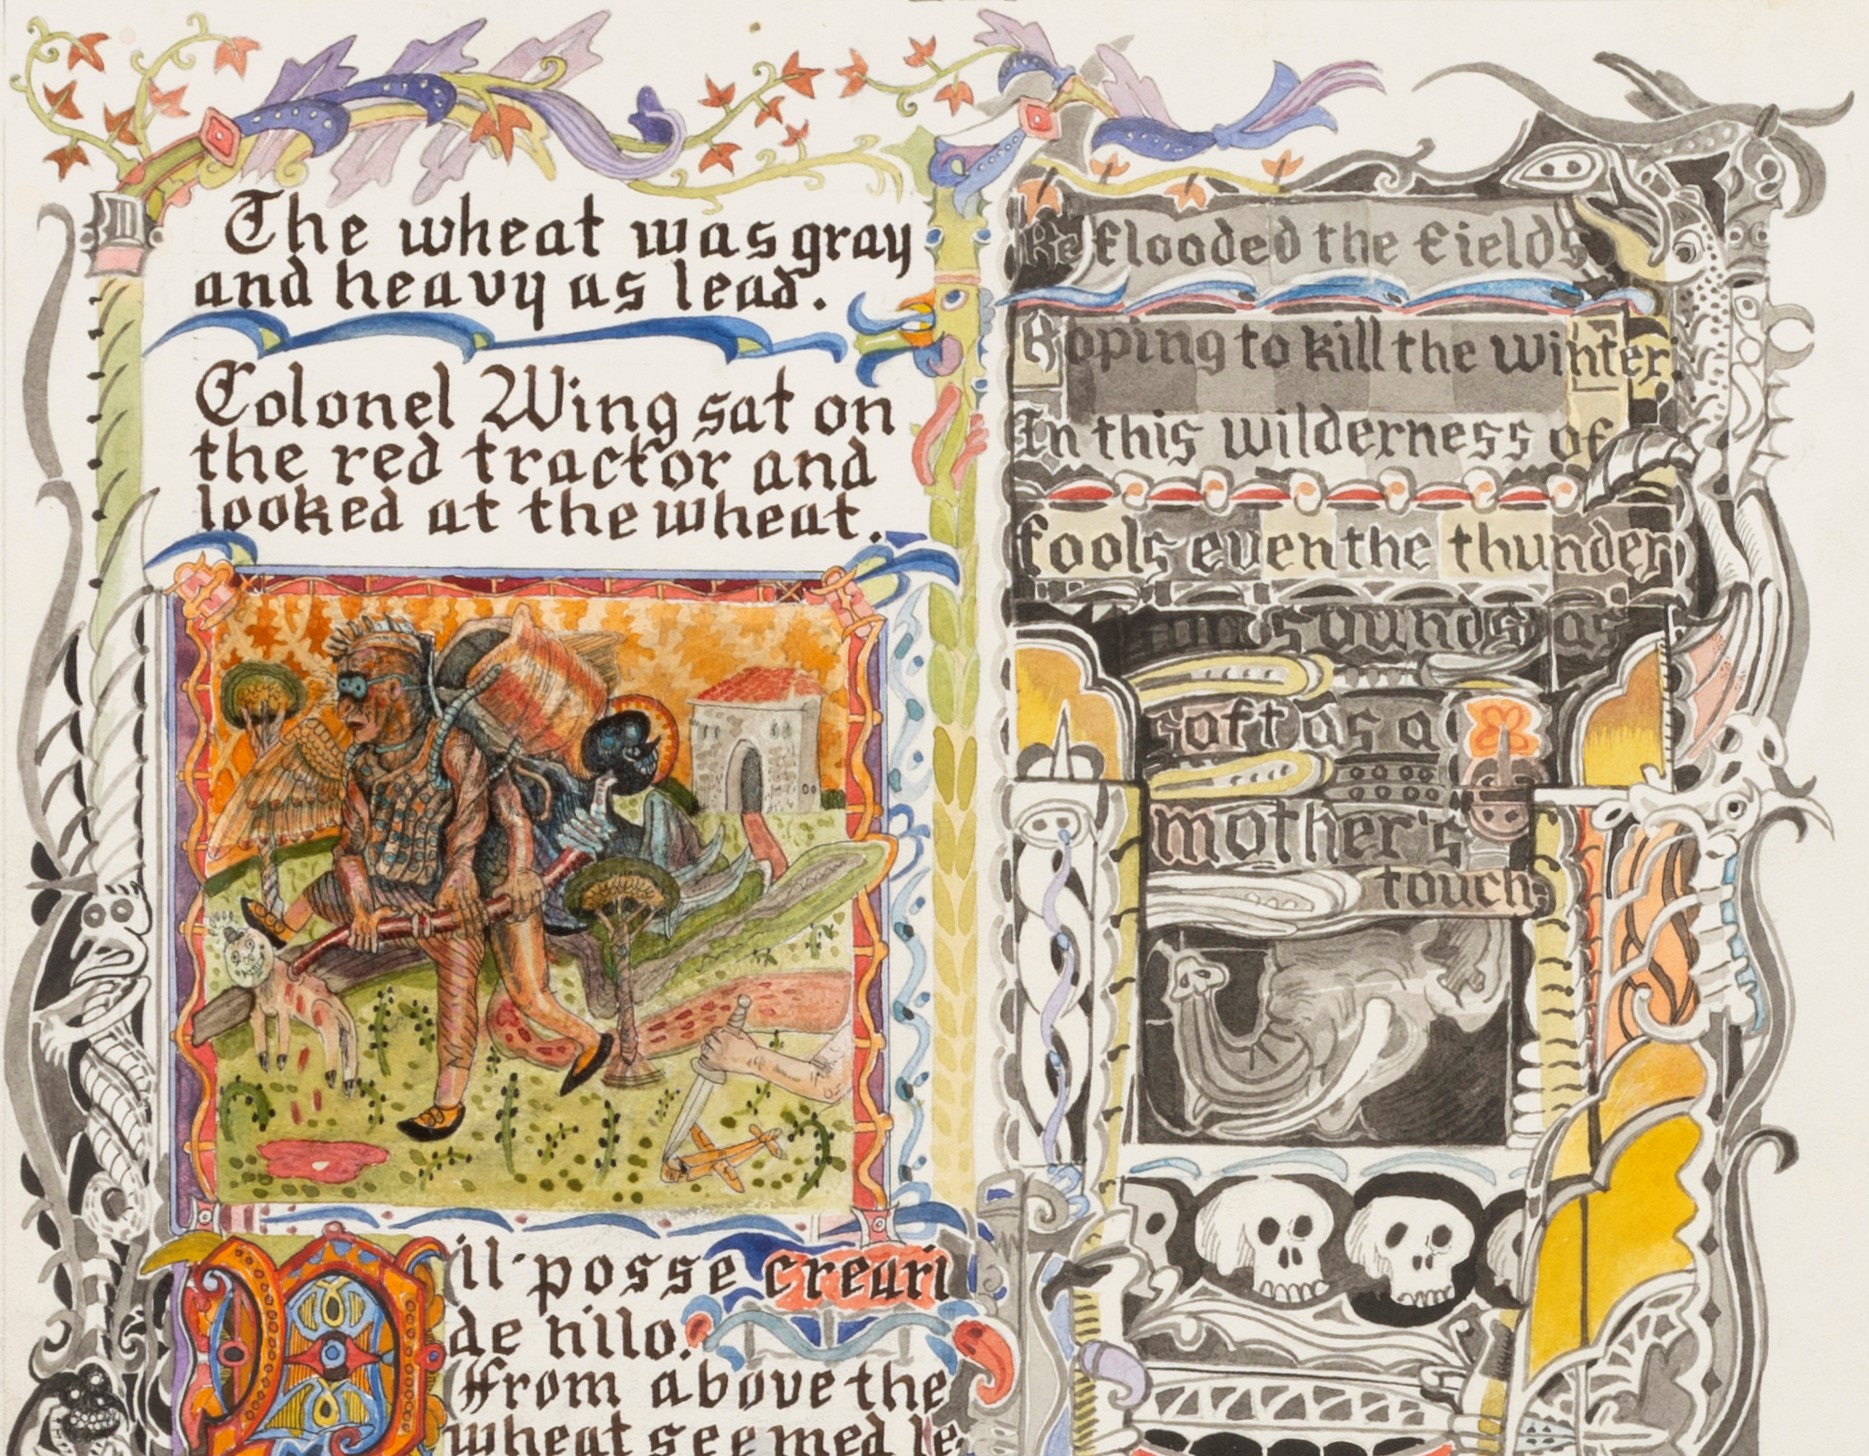 The wheat was gray
and heavy as lead.
Colonel Wing sat on
the red tractor and
looked at the wheat.
Nil posse creari
de nillo.
From above the
wheat seemed le
He flooded the fields
Hoping to kill the winter.
In this wilderness of
fools even the thunder
sounds as
soft as a
mother's
touch